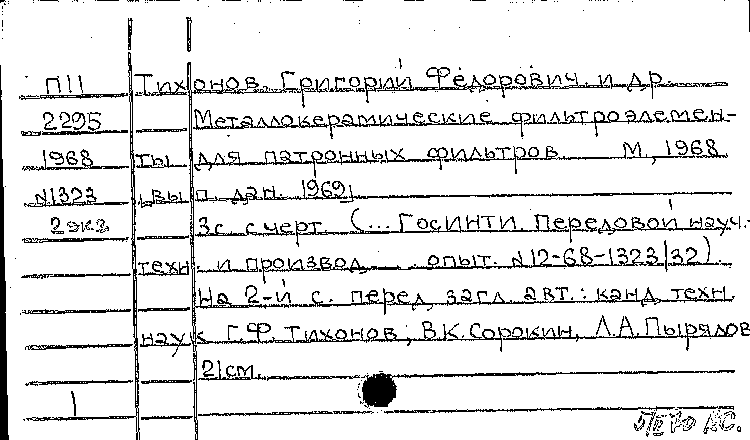 П11 Тихонов, Григорий Фёдорович и др.
2295 Металлокерамические фильтроэлемен-
1968 ты для патронных фильтров. М., 1968
N1323 [вып. дан. 1969]
2 экз 3с. с черт. (... ГОСИНТИ. Передовой науч.-
техн. и производ. опыт. N12-68-1323/32).
На 2-й с. перед загл. авт.: канд. техн.
наук Г.Ф. Тихонов, В.К. Сорокин, Л.А. Пырялов
21см.
1